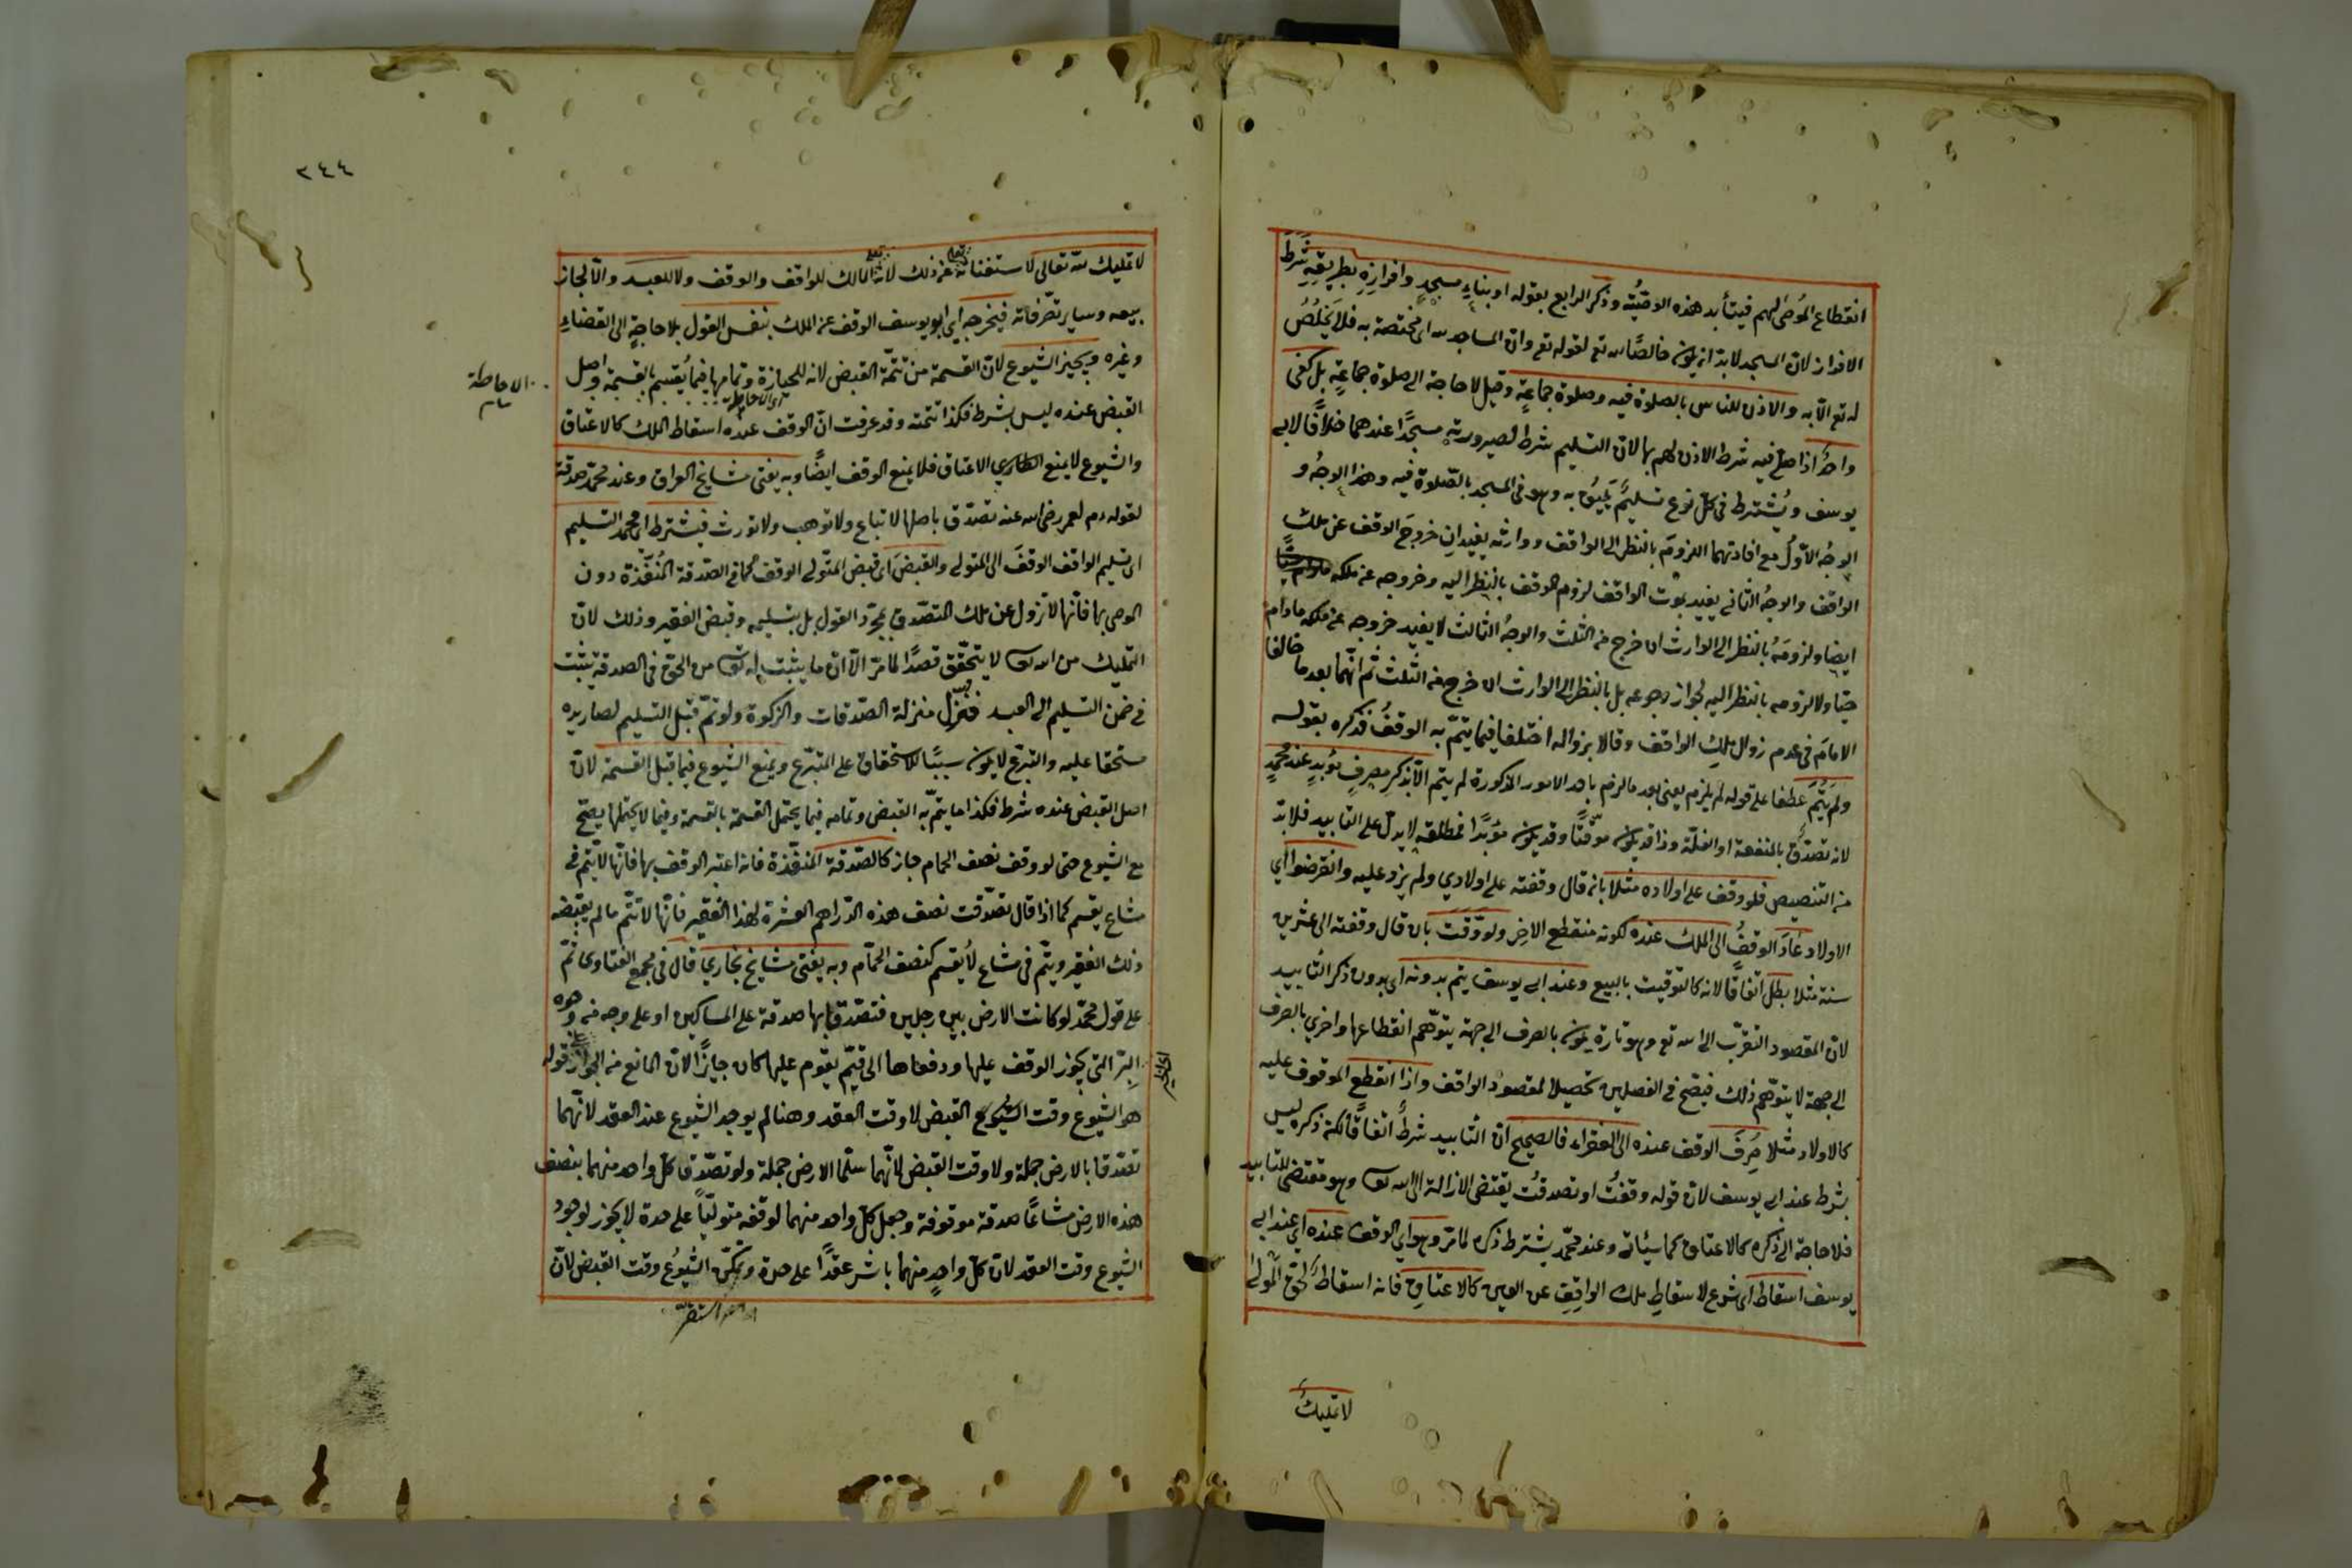 انقطاع الموصى لهم فيتأبد هذه الوصية وذكر الرابع بقوله او بناء مسجد وافرازه بطريقه شرط
الافراز لان المسجد لابد ان يكون خالصا لله تع لقوله تع وان المساجد لله اى مختصة به فلا يخلص
له تع الا به والاذن للناس بالصلوة فيه وصلوة جماعة وقيل لا حاجة الى صلوة جماعة بل كفى
واحد اذا صلى فيه شرط الاذن لهم بها لان التسليم شرط لصيرورته مسجدا عندهما خلافا لابى
يوسف ويشترط فى كل نوع تسليم يليق به وهو فى المسجد بالصلوة فيه وهذا الوجه و
الوجه الاول مع افادتهما اللزوم بالنظر الى الواقف ووارثه يفيدان خروج الوقف عن ملك
الواقف والوجه الثانى يفيد بموت الواقف لزوم الوقف بالنظر اليه وخروجه عن ملكه
ايضا ولزومه بالنظر الى الوارث ان خرج من الثلث والوجه الثالث لا يفيد خروجه عن ملكه مادام
حيا ولا لزومه بالنظر اليه لجواز رجوعه بل بالنظر الى الوارث ان خرج من الثلث ثم انهما بعد ما خالفا
الامام فى عدم زوال ملك الواقف وقالا بزواله اختلفا فيما يتم به الوقف فذكره بقوله
ولم يتم عطفا على قوله لم يلزم يعنى بعد ما لزم باحد الامور المذكورة لم يتم الا بذكر مصرف مؤبد عند محمد
لانه تصدق بالمنفعة او الغلة وذا قد يكون موقتا وقد يكون مؤبدا فمطلقه لا يدل على التابيد فلا بد
من التنصيص فلو وقف على اولاده مثلا بان قال وقفته على اولادي ولم يزد عليه وانقرضوا اي
الاولاد عاد الوقف الى الملك عنده لكونه منقطع الاخر ولو وقت بان قال وقفته الى عشرين
سنة مثلا بطل اتفاقا لانه كالتوقيت بالبيع وعند ابى يوسف يتم بدونه اى بدون ذكر التابيد
لان المقصود التقرب الى الله تع وهو تارة يكون بالصرف الى جهة يتوهم انقطاعها واخرى بالصرف
الى جهة لا يتوهم ذلك فيصح فى الفصلين تحصيلا لمقصود الواقف واذا انقطع الموقوف عليه
كالاولاد مثلا صرف الوقف عنده الى الفقراء فالصحيح ان التابيد شرط اتفاقا لكن ذكره ليس
بشرط عند ابى يوسف لان قوله وقفت او تصدقت يقتضى الازالة الى الله تع وهو مقتضى للتابيد
فلا حاجة الى ذكره كالاعتاق كما سيأتى وعند محمد يشترط ذكره لما مر وهو اي الوقف عنده اي عند ابى
يوسف اسقاط اى شرع لاسقاط ملك الواقف عن العين كالاعتاق فانه اسقاط لحق المولى
لا تمليك
٢٤٤
لا تمليك لله تعالى لاستغنائه عن ذلك لانه المالك للواقف والوقف ولا للعبد والا لجاز
بيعه وسايرتصرفاته فيخرجه اى ابو يوسف الوقف عن الملك بنفس القول بلا حاجة الى القضاء
وغيره ويجيز الشيوع لان القسمة من تتمة القبض لانه للحيازة وتمامها فيما يقسم بالقسمة واصل
القبض عنده ليس بشرط فكذا تتمته وقد عرفت ان الوقف عنده اسقاط الملك كالاعتاق
والشيوع لا يمنع الاعتاق فلا يمنع الوقف ايضا وبه يفتى مشايخ العراق وعند محمد صدقة
لقوله دم لعمر رضى الله عنه تصدق باصلها لا تباع ولا توهب ولا تورث فيشترط اى محمد التسليم
اى تسليم الواقف الوقف الى المتولى والقبض اى قبض المتولى الوقف كما فى الصدقة المنفذة دون
الموصى بها فانها لا تزول عن ملك المتصدق بمجرد القول بل بتسليمه وقبض الفقير وذلك لان
التمليك من الله تع لا يتحقق قصدا لما مر الا ان ما يثبت له تع من الحق فى الصدقة يثبت
فى ضمن التسليم الى العبد فنزل منزلة الصدقات والزكوة ولو تم قبل التسليم لصار يده
مستحقا عليه والتبرع لا يكون سببا للاستحقاق على المتبرع ويمنع الشيوع فيما قبل القسمة لان
اصل القبض عنده شرط فكذا ما يتم به القبض وتمامه فيما يحتمل القسمة بالقسمة وفيما لا يحتملها يصح
مع الشيوع حتى لو وقف نصف الحمام جاز كالصدقة المنفذة فانه اعتبر الوقف بها فانها لا يتم فى
مشاع يقسم كما اذا قال تصدقت نصف هذه الدراهم العشرة لهذا الفقير فانها لا تتم ما لم يقبضه
ذلك الفقير ويتم فى مشاع لا يقسم كنصف الحمام وبه يفتى مشايخ بخاري قال فى مجمع الفتاوى ثم
على قول محمد لو كانت الارض بين رجلين فتصدقا بها صدقة على المساكين او على وجه من وجوه
البر التى يجوز الوقف عليها ودفعاها الى قيم يقوم عليها كان جايزا لان المانع من الجواز على قوله
هو الشيوع وقت القبض لا وقت العقد وهنا لم يوجد الشيوع عند العقد لانهما
تصدقا بالارض جملة ولا وقت القبض لانهما سلما الارض جملة ولو تصدق كل واحد منهما بنصف
هذه الارض مشاعا صدقة موقوفة وجعل كل واحد منهما لوقفه متوليا على حدة لا يجوز لوجود
الشيوع وقت العقد لان كل واحد منهما باشر عقدا على حدة وتمكن الشيوع وقت القبض لان
الاحاطة